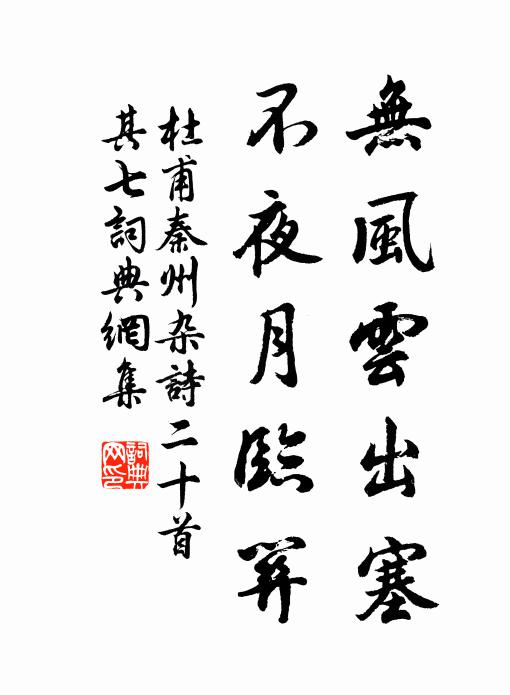 無風雲出塞
不夜月臨關
杜甫秦州杂詩二十首
其七詞典網集
詞典
网印